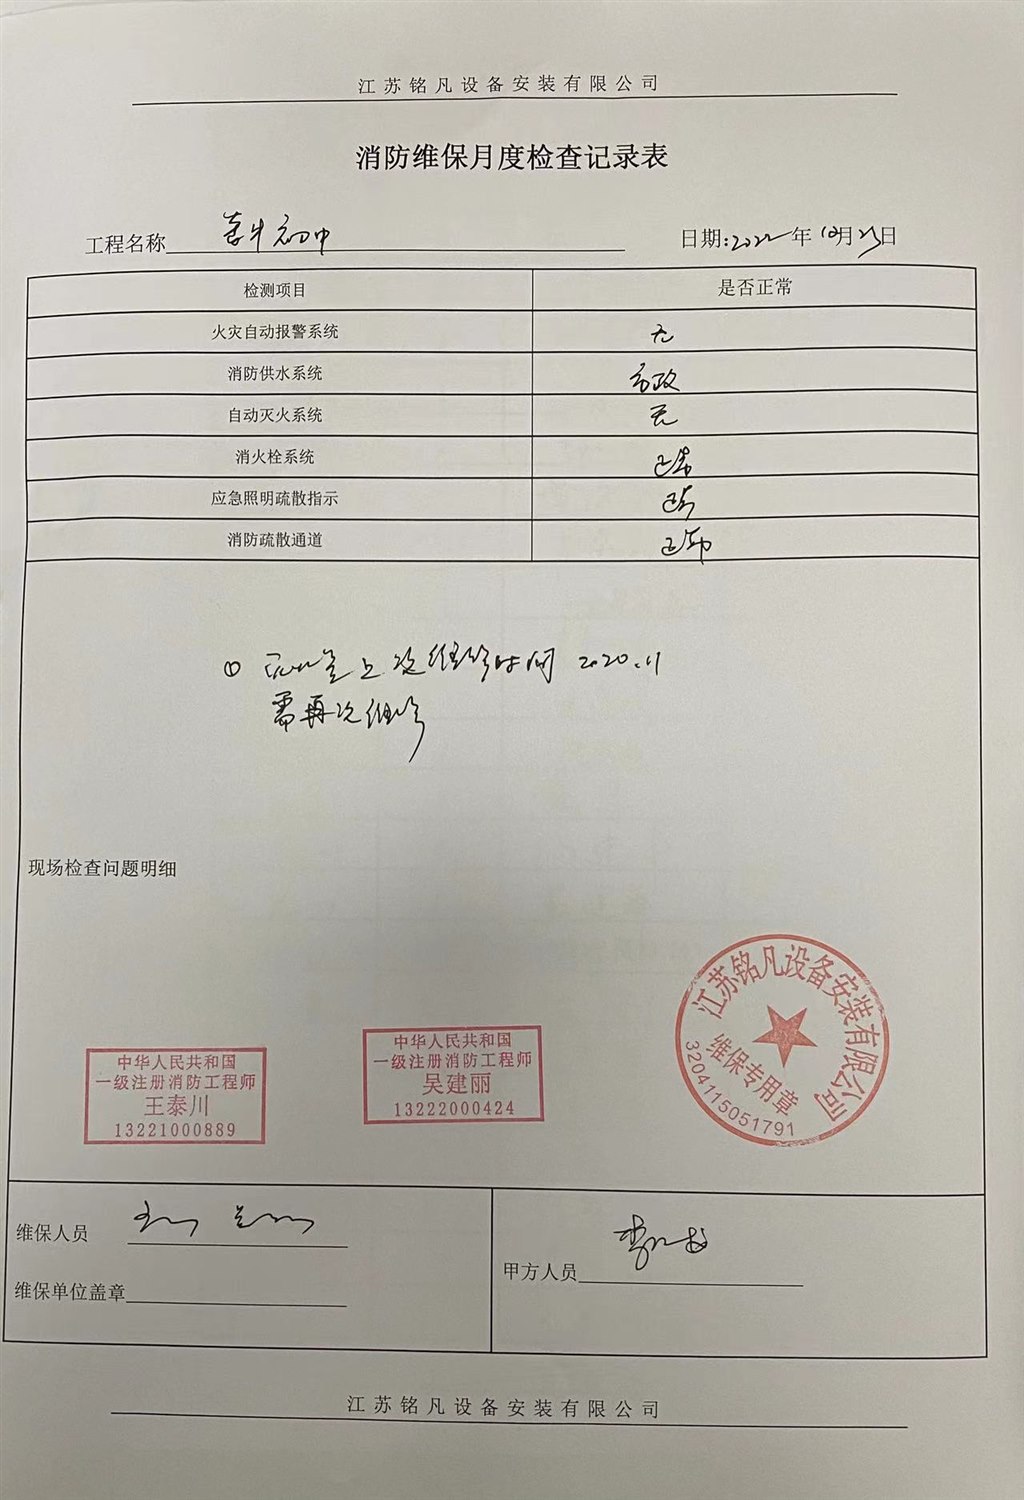 江苏铭凡设备安装有限公司
消防维保月度检查记录表
工程名称 初中 日期:2022年10月25日
检测项目 是否正常
火灾自动报警系统 无
消防供水系统 市政
自动灭火系统 无
消火栓系统 正常
应急照明疏散指示 正常
消防疏散通道 正常
① 上次维修时间 2020.11
需再次维修
现场检查问题明细
江苏铭凡设备安装有限公司
维保专用章
3204115051791
中华人民共和国
一级注册消防工程师
王泰川
13221000889
中华人民共和国
一级注册消防工程师
吴建丽
13222000424
维保人员
维保单位盖章
甲方人员
江苏铭凡设备安装有限公司